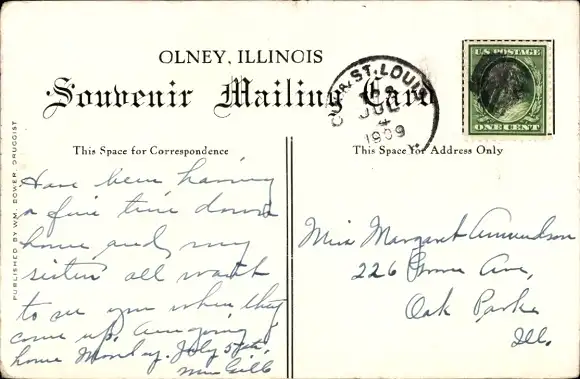 OLNEY, ILLINOIS
Souvenir Mailing Card
ST. LOUIS
JUL
4
1909
U.S. POSTAGE
ONE CENT
This Space for Correspondence
This Space For Address Only
PUBLISHED BY WM. BOWER, DRUGGIST
Have been having
a fine time down
home and my
sisters all want
to see you when they
come up. Am going
home Monday. July 5th.
Miss Margaret Amundson
226 Ave,
Oak Park
Ill.